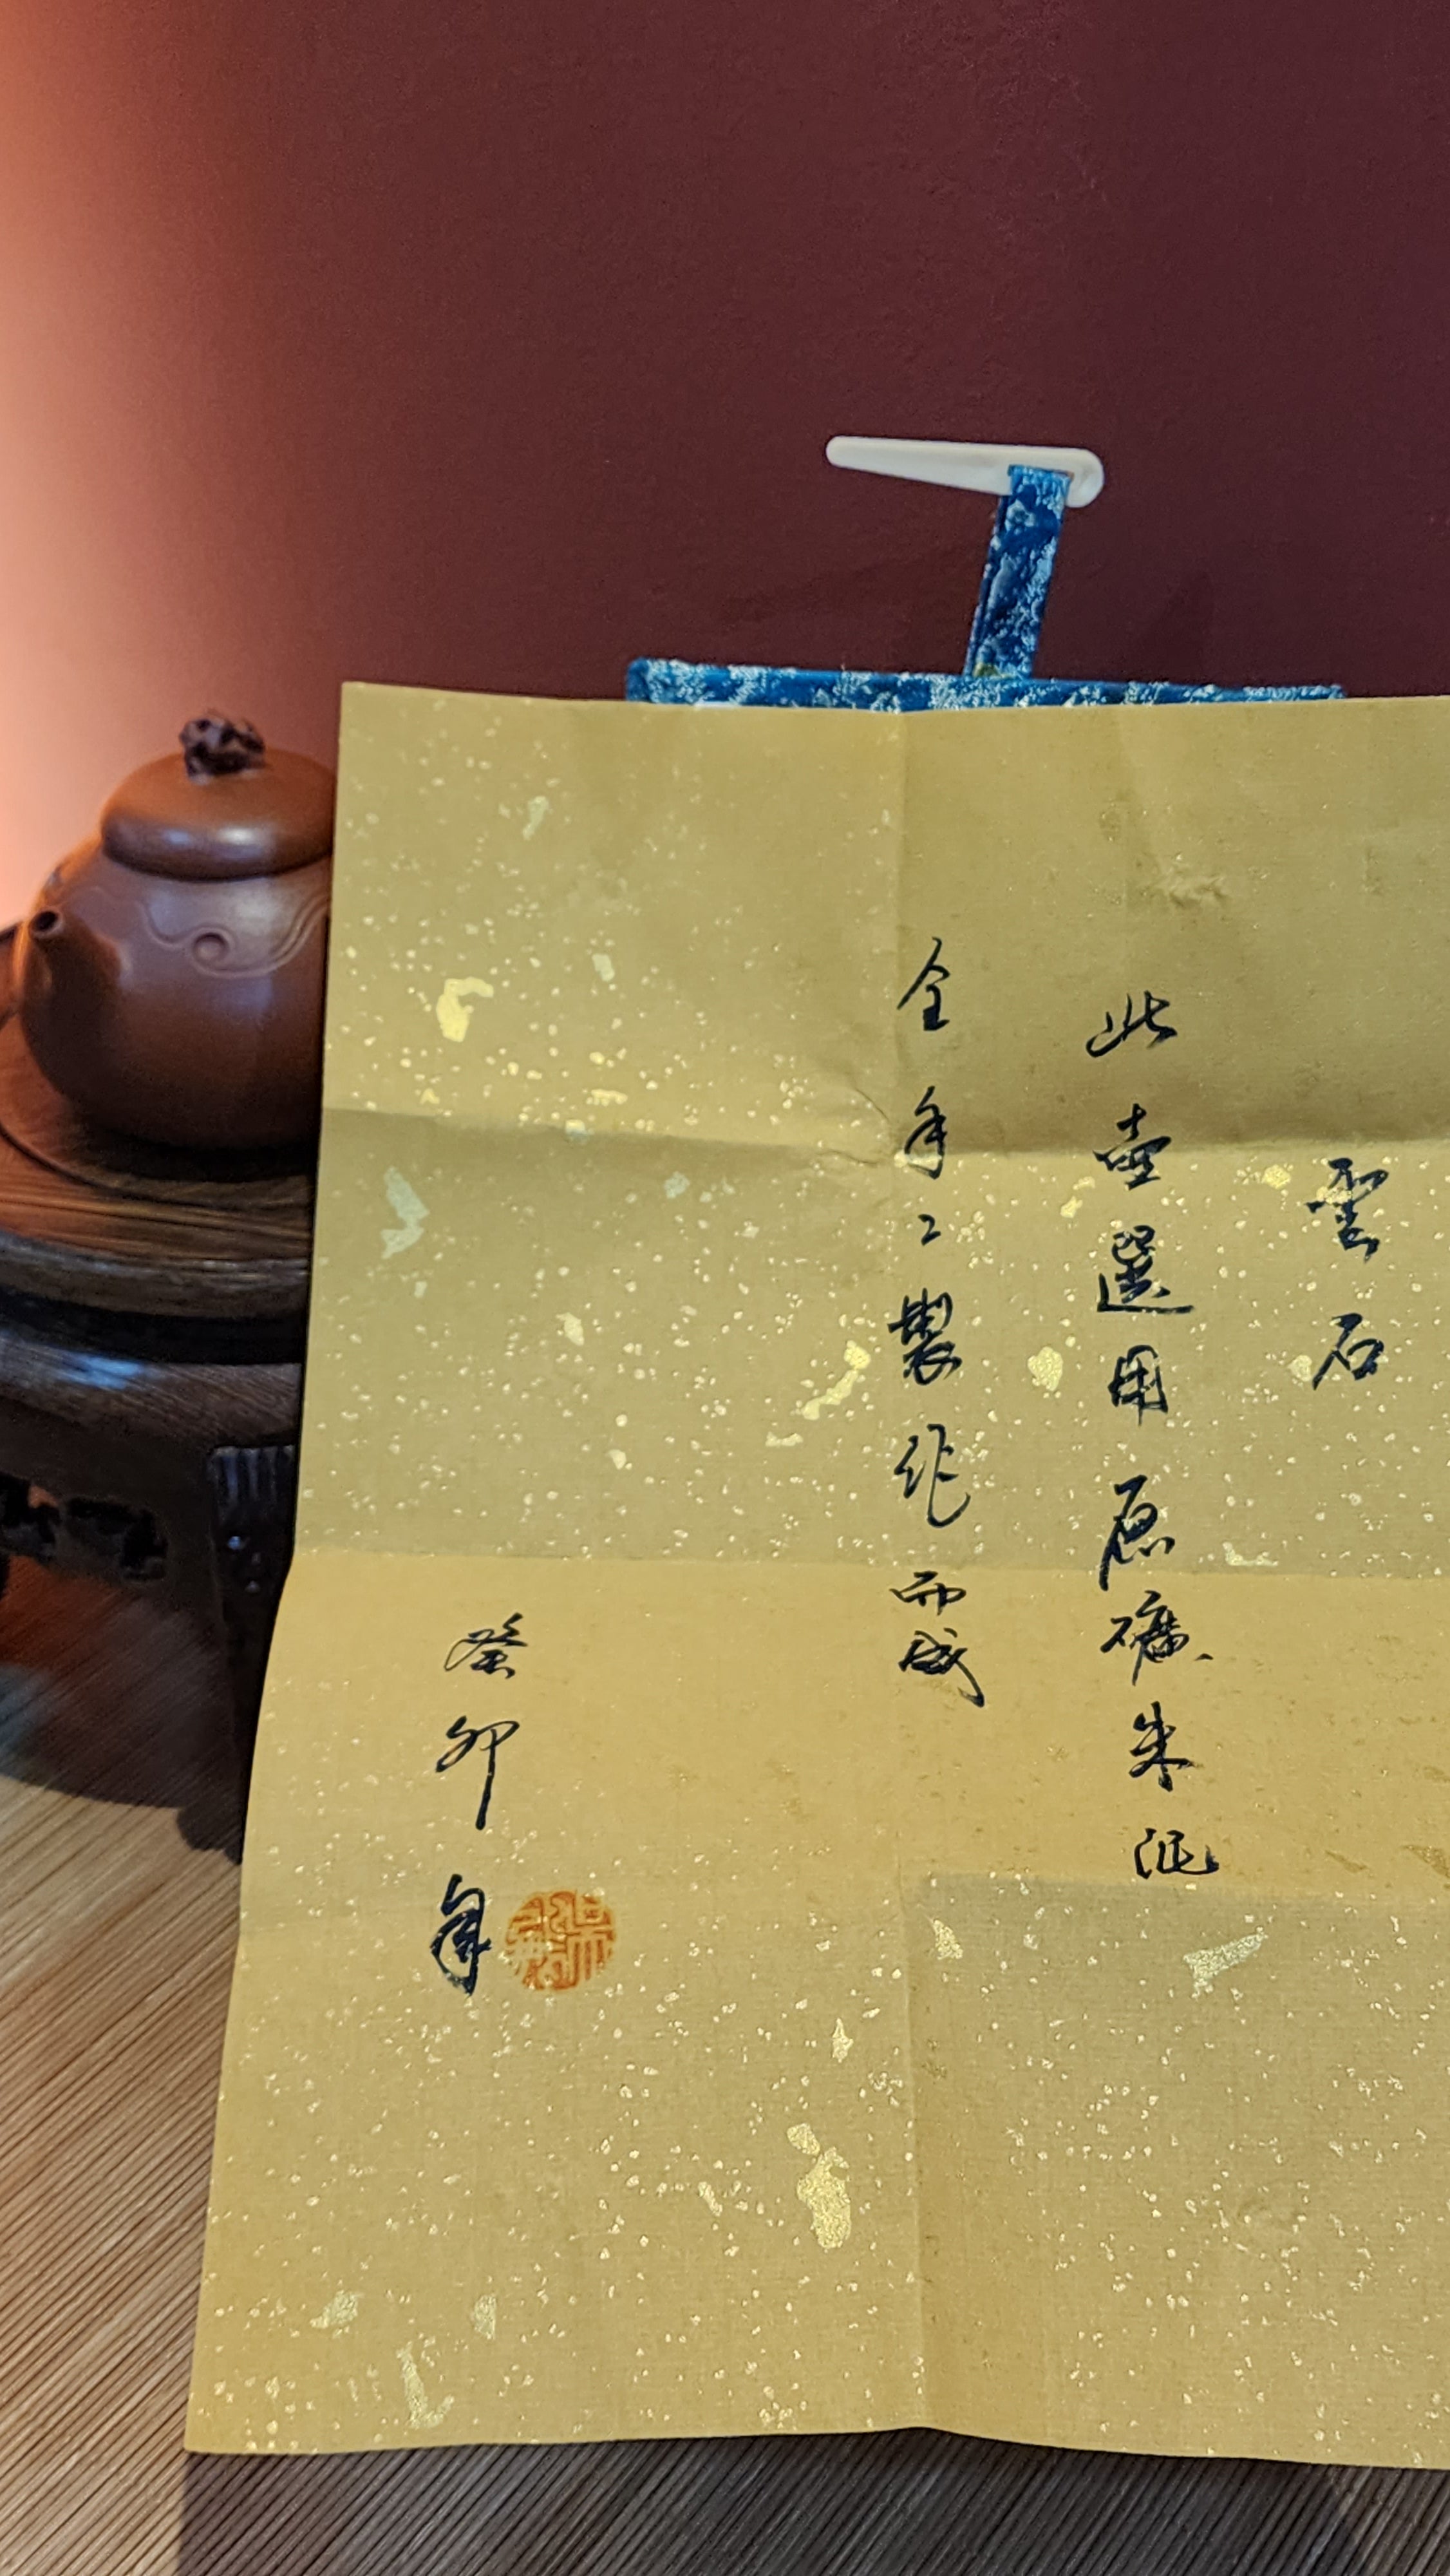 雲石
此壺選用原礦朱泥
全手工製作而成
癸卯